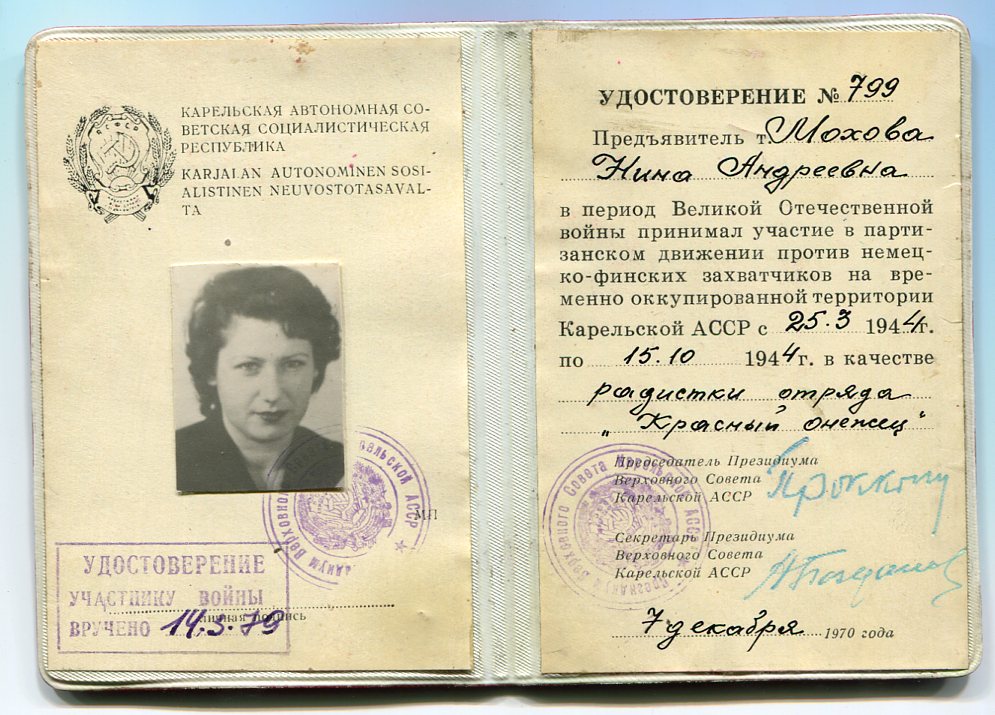 КАРЕЛЬСКАЯ АВТОНОМНАЯ СО-
ВЕТСКАЯ СОЦИАЛИСТИЧЕСКАЯ
РЕСПУБЛИКА
KARJALAN AUTONOMINEN SOSI-
ALISTINEN NEUVOSTOTASAVAL-
TA
МП
УДОСТОВЕРЕНИЕ
УЧАСТНИКУ ВОЙНЫ
ВРУЧЕНО 14.3.79
личная подпись
УДОСТОВЕРЕНИЕ № 799
Предъявитель т. Мохова
Нина Андреевна
в период Великой Отечественной
войны принимал участие в парти-
занском движении против немец-
ко-финских захватчиков на вре-
менно оккупированной территории
Карельской АССР с 25.3 1944г.
по 15.10 1944г. в качестве
радистки отряда
„Красный онежец"
Председатель Президиума
Верховного Совета
Карельской АССР
Секретарь Президиума
Верховного Совета
Карельской АССР
7 декабря 1970 года